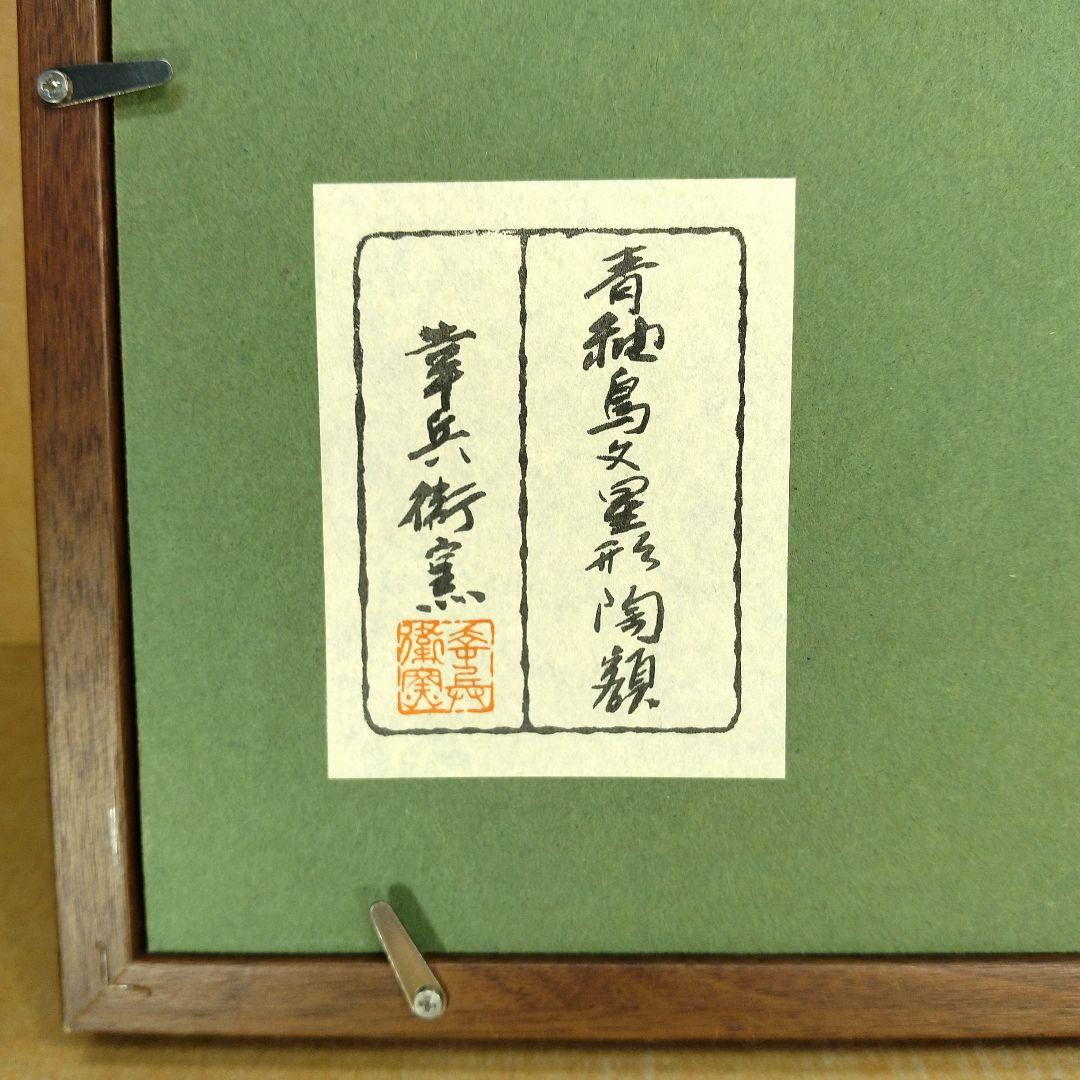 青釉鳥文星形陶額
幸兵衛窯
幸兵
衛窯